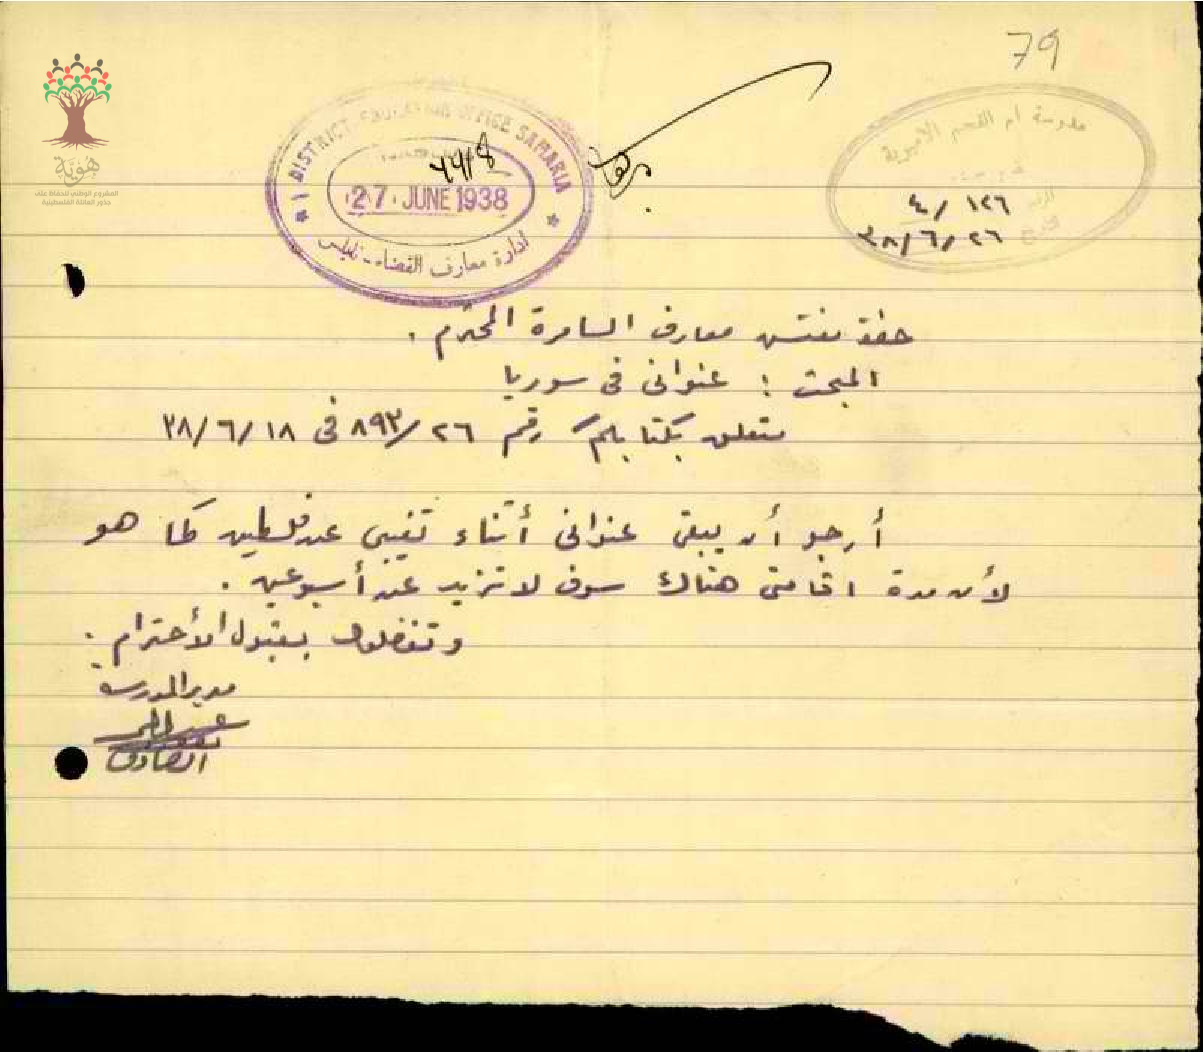 79
هوية
المشروع الوطني للحفاظ على
جذور العائلة الفلسطينية
DISTRICT EDUCATION OFFICE SAMARIA
27 JUNE 1938
ادارة معارف القضاء - نابلس
مدرسة ام الفحم الاميرية
٤/ ١٢٦
٣٨/٦/٢٦
حضرة مفتش معارف السامرة المحترم .
المبحث : عنواني في سوريا
متعلق بكتابكم رقم ٨٩٣/٢٦ في ٣٨/٦/١٨
أرجو أن يبقى عنواني أثناء تغيبي عن فلسطين كما هو
لأن مدة اقامتي هناك سوف لا تزيد عن أسبوعين .
وتفضلوا بقبول الأحترام .
مدير المدرسة
الصادق